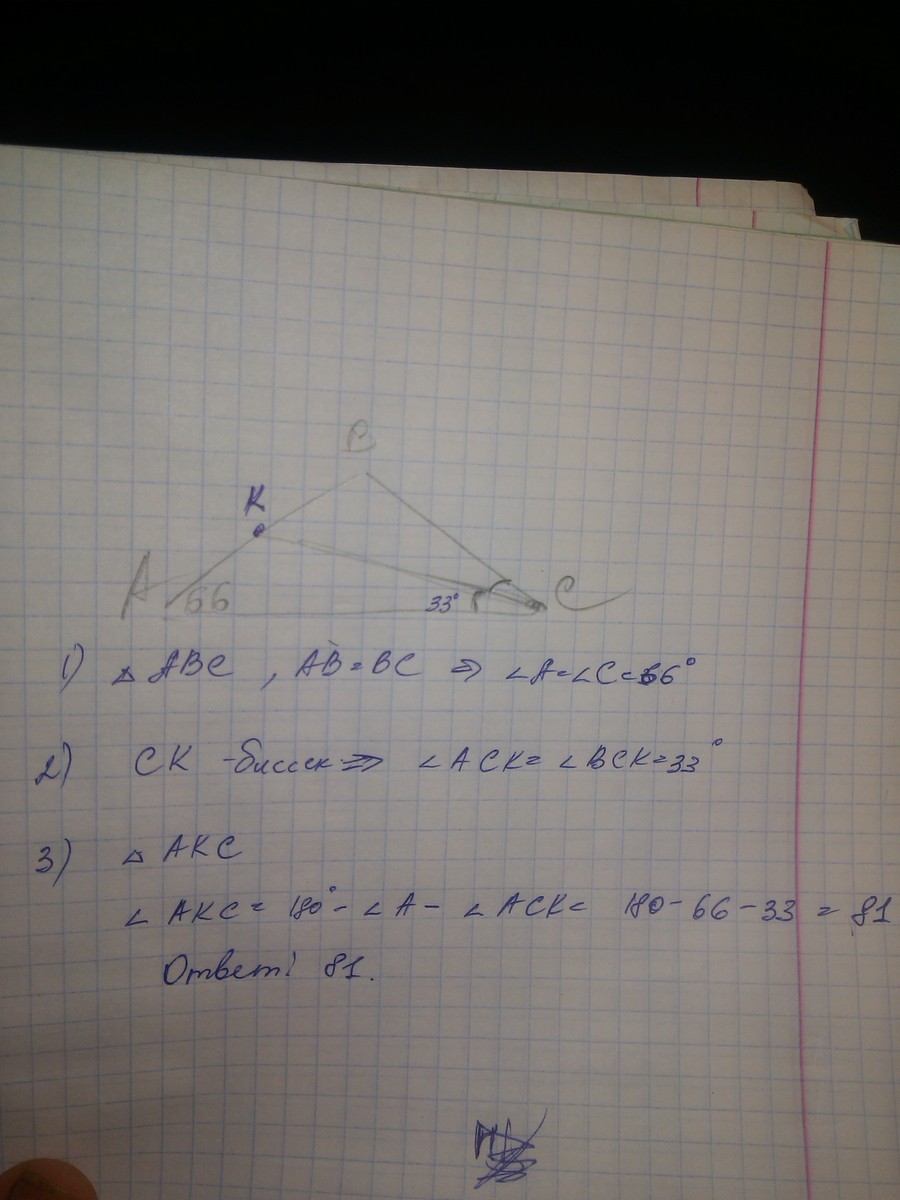 B
K
A 66 33° C
1) △ ABC , AB = BC ⇒ ∠A=∠C=66°
2) CK -биссек ⇒ ∠ACK= ∠BCK=33°
3) △ AKC
∠ AKC = 180°- ∠A - ∠ACK= 180-66-33 = 81
Ответ: 81.